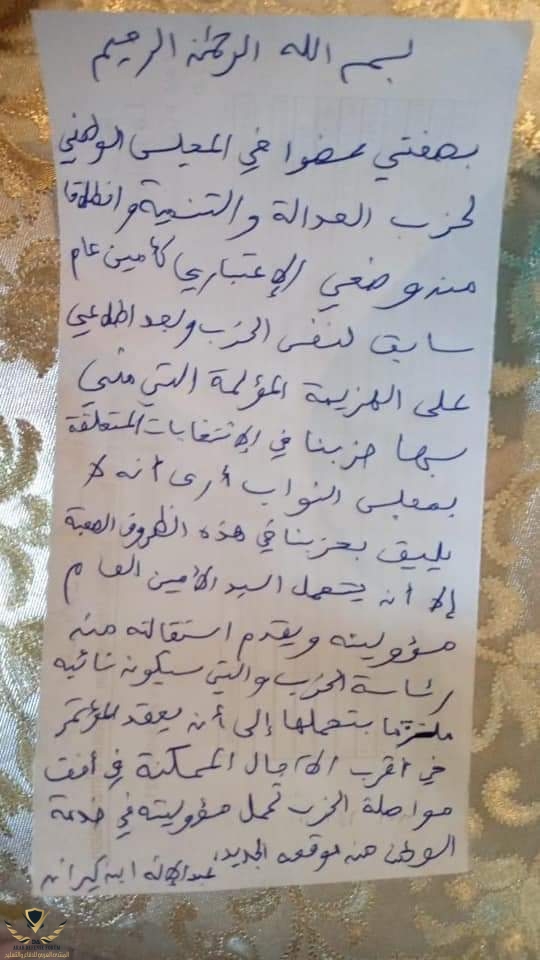 بسم الله الرحمان الرحيم
بصفتي عضوا في المجلس الوطني
لحزب العدالة والتنمية وانطلاقا
من وضعي الإعتباري كأمين عام
سابق لنفس الحزب وبعد اطلاعي
على الهزيمة المؤلمة التي مني
بها حزبنا في الإنتخابات المتعلقة
بمجلس النواب أرى أنه لا
يليق بحزبنا في هذه الظروف الصعبة
إلا أن يتحمل السيد الأمين العام
مسؤوليته ويقدم استقالته من
رئاسة الحزب والتي سيكون نائبه
ملزما بتحملها إلى أن يعقد المؤتمر
في أقرب الآجال الممكنة في أفق
مواصلة الحزب تحمل مسؤوليته في خدمة
الوطن من موقعه الجديد، عبد الإله ابن كيران